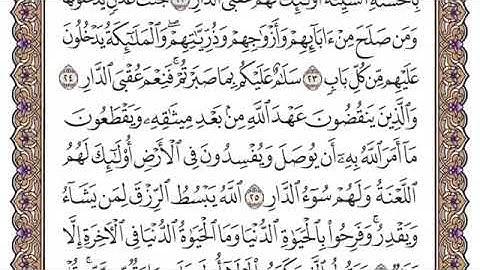 بِٱلْحَسَنَةِ ٱلسَّيِّئَةَ أُو۟لَٰٓئِكَ لَهُمْ عُقْبَى ٱلدَّارِ ٢٢ جَنَّٰتُ عَدْنٍ يَدْخُلُونَهَا
وَمَن صَلَحَ مِنْ ءَابَآئِهِمْ وَأَزْوَٰجِهِمْ وَذُرِّيَّٰتِهِمْ ۖ وَٱلْمَلَٰٓئِكَةُ يَدْخُلُونَ
عَلَيْهِم مِّن كُلِّ بَابٍ ٢٣ سَلَٰمٌ عَلَيْكُم بِمَا صَبَرْتُمْ ۚ فَنِعْمَ عُقْبَى ٱلدَّارِ ٢٤
وَٱلَّذِينَ يَنقُضُونَ عَهْدَ ٱللَّهِ مِنۢ بَعْدِ مِيثَٰقِهِۦ وَيَقْطَعُونَ
مَآ أَمَرَ ٱللَّهُ بِهِۦٓ أَن يُوصَلَ وَيُفْسِدُونَ فِى ٱلْأَرْضِ أُو۟لَٰٓئِكَ لَهُمُ
ٱللَّعْنَةُ وَلَهُمْ سُوٓءُ ٱلدَّارِ ٢٥ ٱللَّهُ يَبْسُطُ ٱلرِّزْقَ لِمَن يَشَآءُ
وَيَقْدِرُ ۚ وَفَرِحُوا۟ بِٱلْحَيَوٰةِ ٱلدُّنْيَا وَمَا ٱلْحَيَوٰةُ ٱلدُّنْيَا فِى ٱلْءَاخِرَةِ إِلَّا